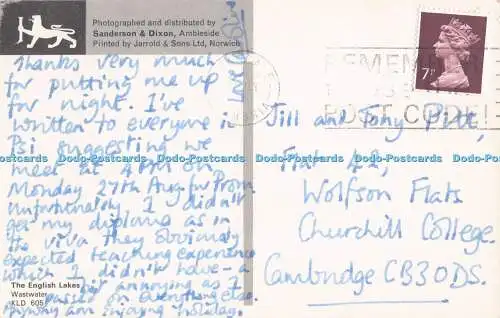 Photographed and distributed by
Sanderson & Dixon, Ambleside
Printed by Jarrold & Sons Ltd, Norwich
Thanks very much
for putting me up
for night. I've
written to everyone in
Psi suggesting we
meet at 4 PM on
Monday 27th Aug. for Prom.
Unfortunately I didn't
get my diploma as in
the viva they obviously
expected teaching experience
which I didn't have - a
bit annoying as I
passed on everything else.
Anyway am enjoying holiday.
The English Lakes
Wastwater
KLD 605
7P
REMEMBER
POST CODE!
Jill and Tony Pitt,
Flat 42,
Wolfson Flats
Churchill College
Cambridge CB3 0DS.
Postcards